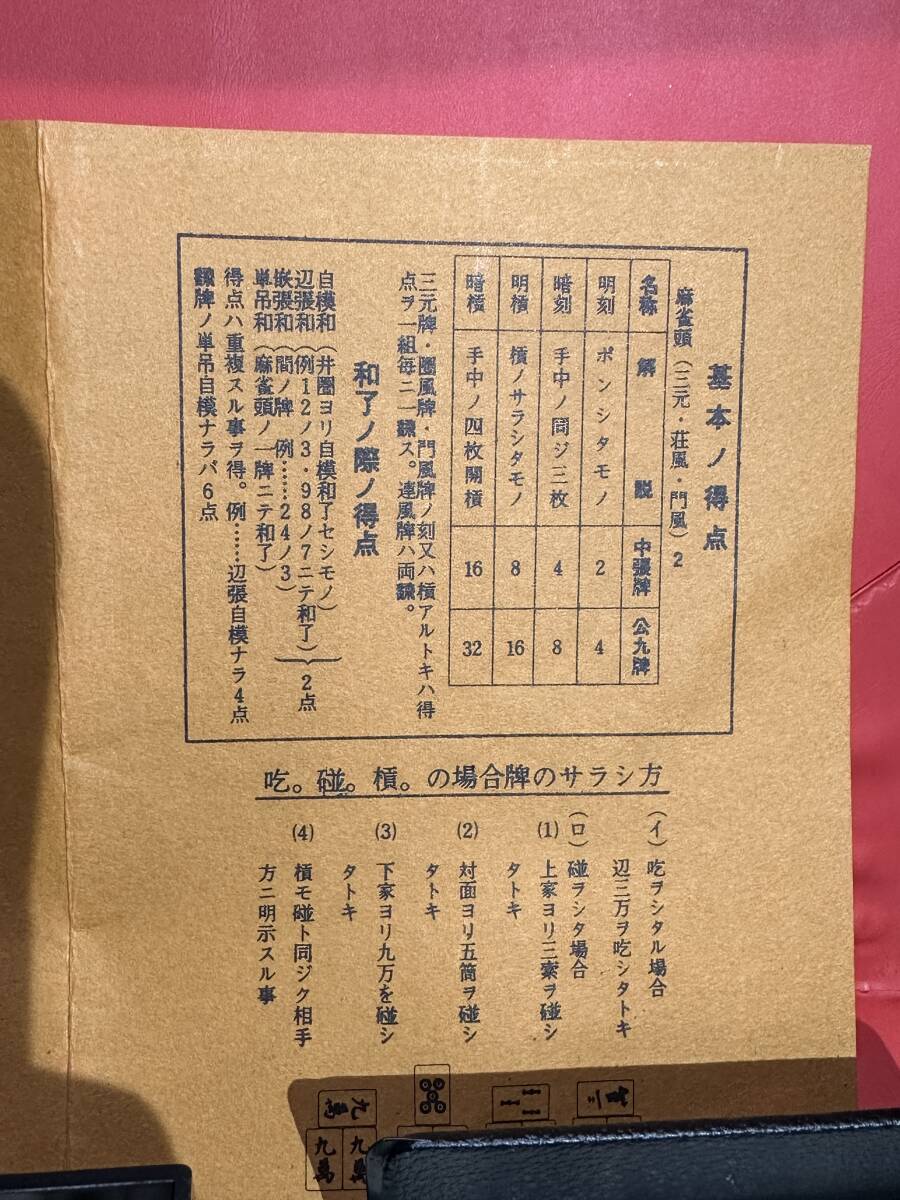 基本ノ得点
麻雀頭(三元・荘風・門風)2
名称 解説 中張牌 公九牌
明刻 ポンシタモノ 2 4
暗刻 手中ノ同ジ三枚 4 8
明槓 槓ノサラシタモノ 8 16
暗槓 手中ノ四枚開槓 16 32
三元牌・圏風牌・門風牌ノ刻又ハ槓アルトキハ得
点ヲ一組毎ニ一飜ス。連風牌ハ両飜。
和了ノ際ノ得点
自模和(井圏ヨリ自模和了セシモノ)
辺張和(例12ノ3・98ノ7ニテ和了)
嵌張和(間ノ牌 例……24ノ3)
単吊和(麻雀頭ノ一牌ニテ和了)
2点
得点ハ重複スル事ヲ得。例……辺張自模ナラ4点
飜牌ノ単吊自模ナラバ6点
吃。碰。槓。の場合牌のサラシ方
(イ) 吃ヲシタル場合
辺三万ヲ吃シタトキ
(ロ) 碰ヲシタ場合
(1) 上家ヨリ三索ヲ碰シ
タトキ
(2) 対面ヨリ五筒ヲ碰シ
タトキ
(3) 下家ヨリ九万を碰シ
タトキ
(4) 槓モ碰ト同ジク相手
方ニ明示スル事
九萬
九萬
九